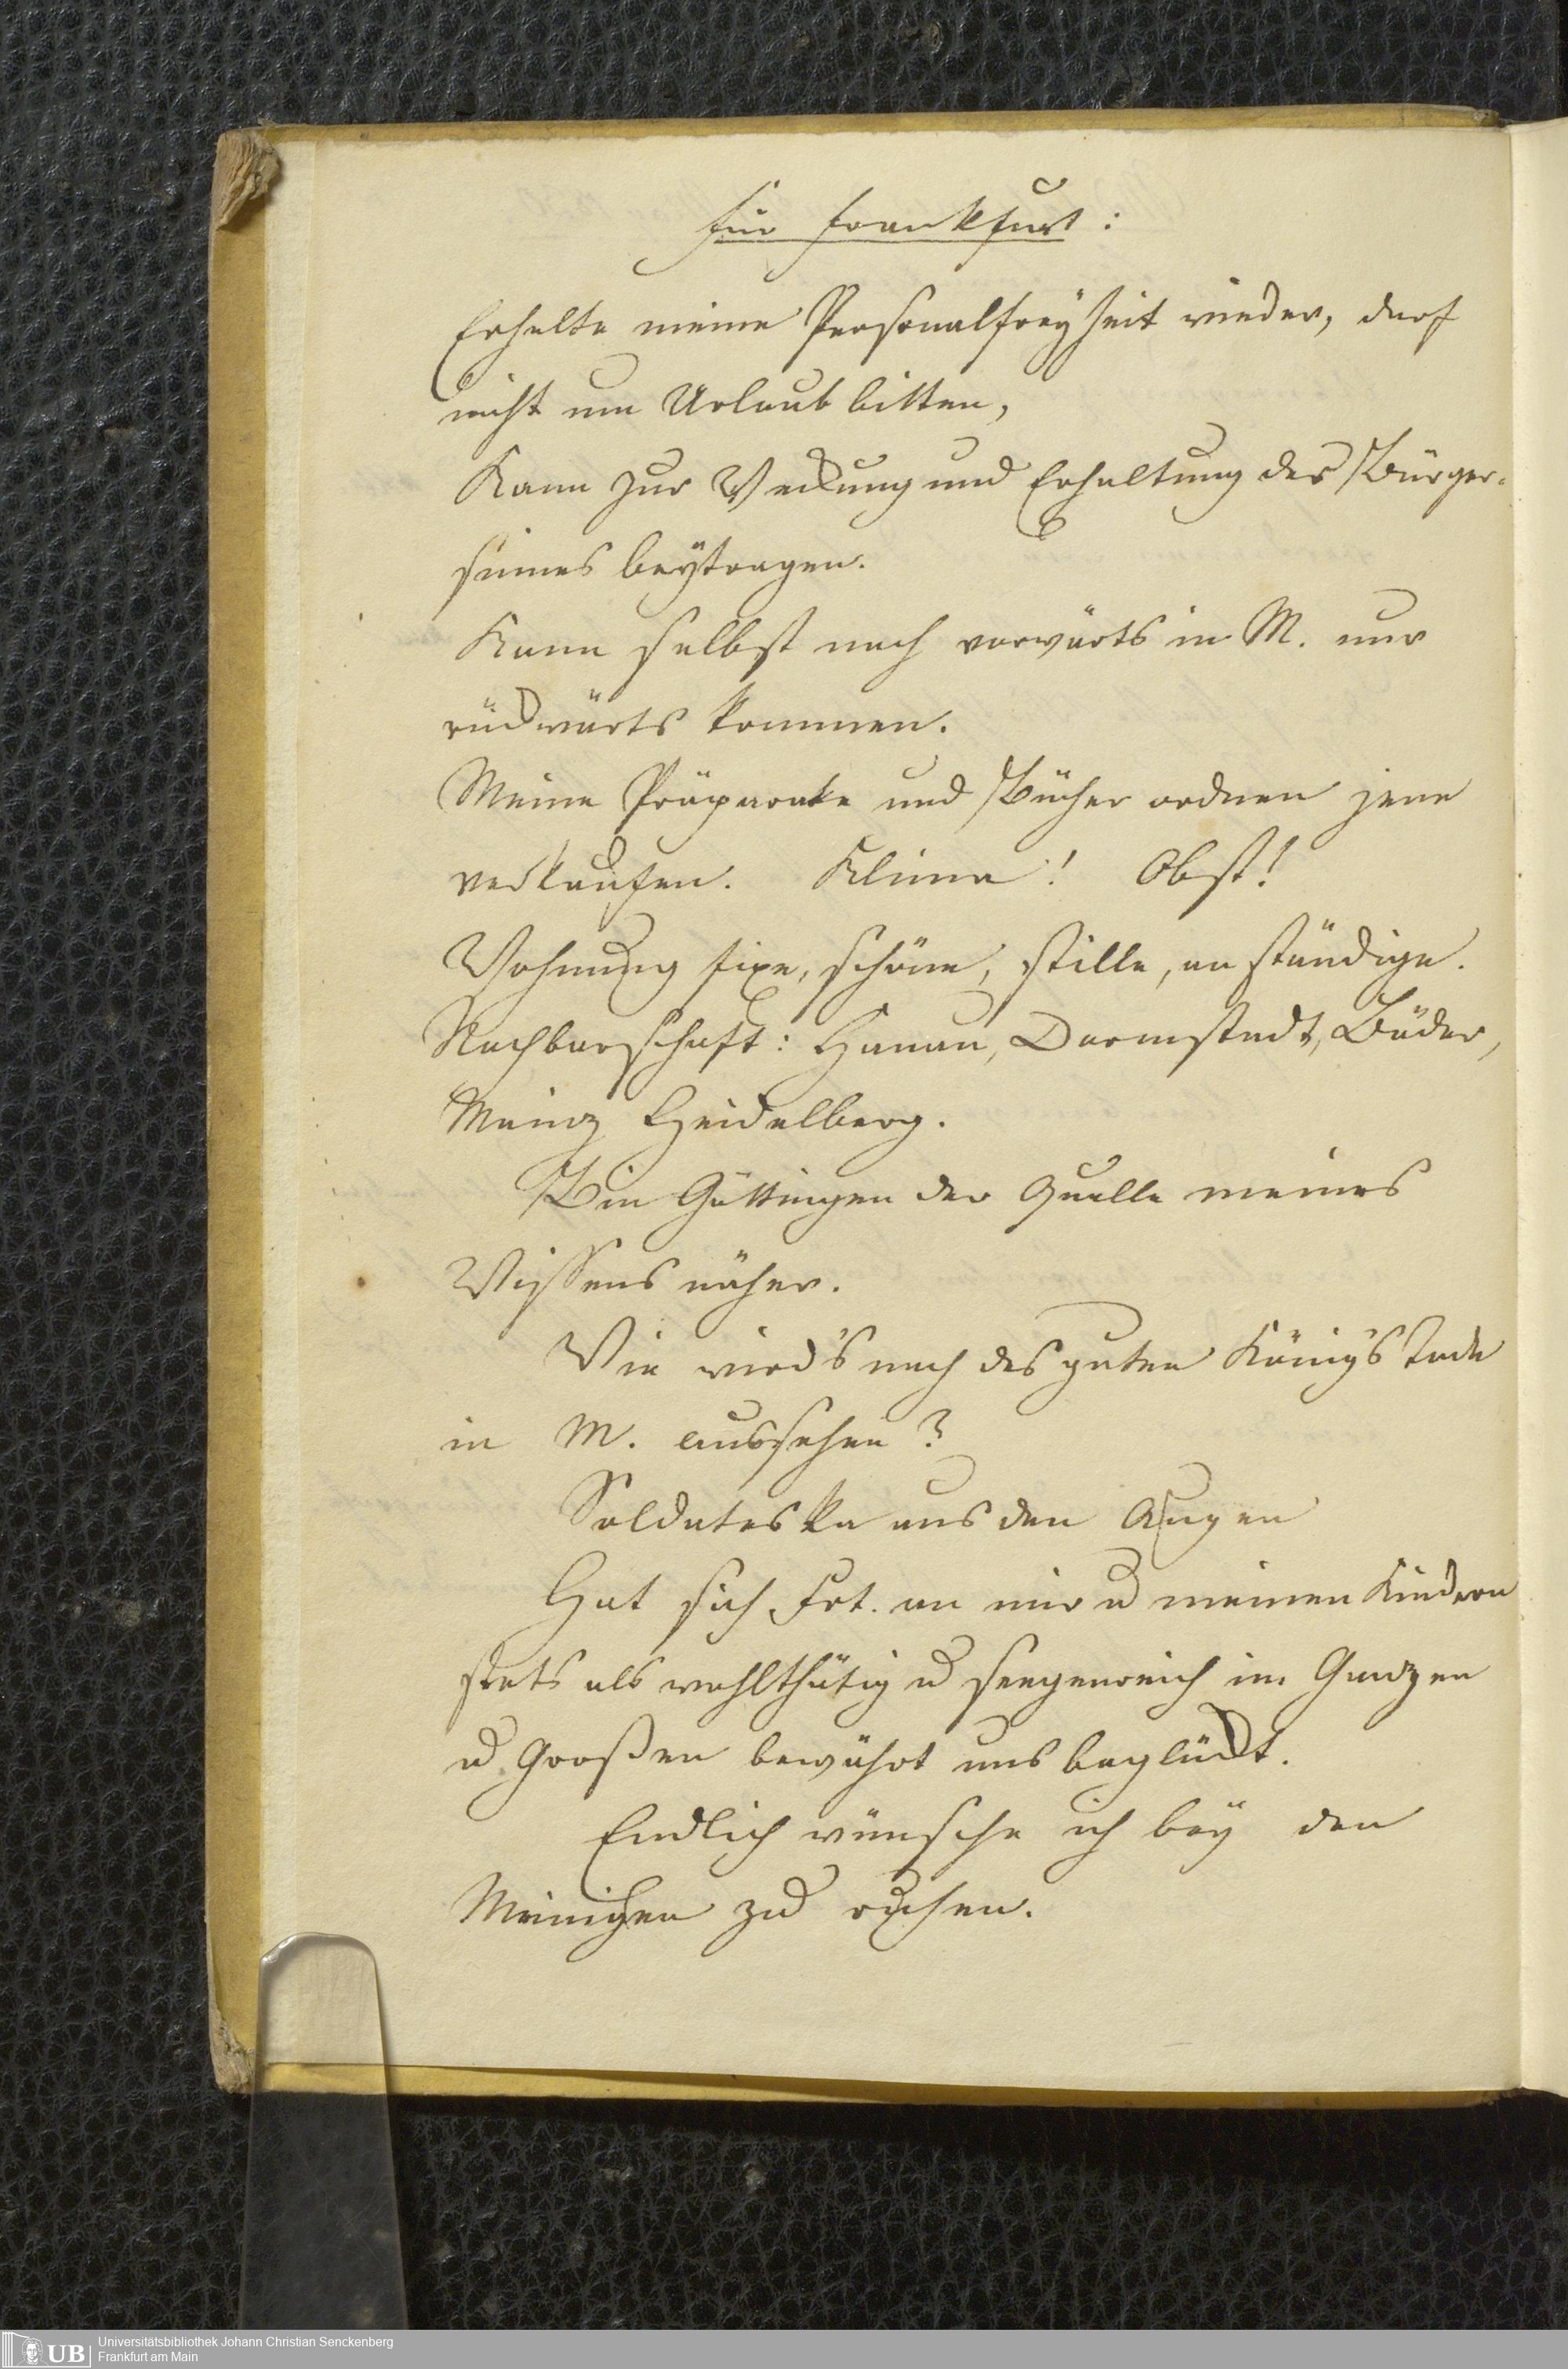 für Frankfurt:
Erhalte meine Personalfreyheit wieder, darf
nicht um Urlaub bitten,
Kann zur Weckung und Erhaltung des Bürger-
sinnes beytragen.
Kann selbst noch vorwärts in M. nur
rückwärts kommen.
Meine Präparate und Bücher ordnen jene
verkaufen. Klima! Obst!
Wohnung fixe, schöne, stille, anständige.
Nachbarschaft: Hanau, Darmstadt, Bäder,
Mainz Heidelberg.
Bin Göttingen der Quelle meines
Wissens näher.
Wie wird's nach des guten König's Tode
in M. aussehen?
Soldateska aus den Augen
Hat sich Frt. an mir u meinen Kindern
stets als wohlthätig u seegenreich im Ganzen
u Großen bewährt uns beglückt.
Endlich wünsche ich bey den
Meinigen zu ruhen.
UB
Universitätsbibliothek Johann Christian Senckenberg
Frankfurt am Main